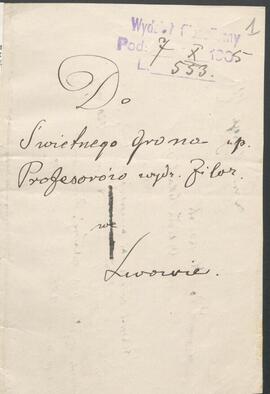 1
Wydział
Pod. 7 X 1905
L. 553.
Do
Swietnego Grona
Profesorów wydz. filoz.
w
Lwowie.